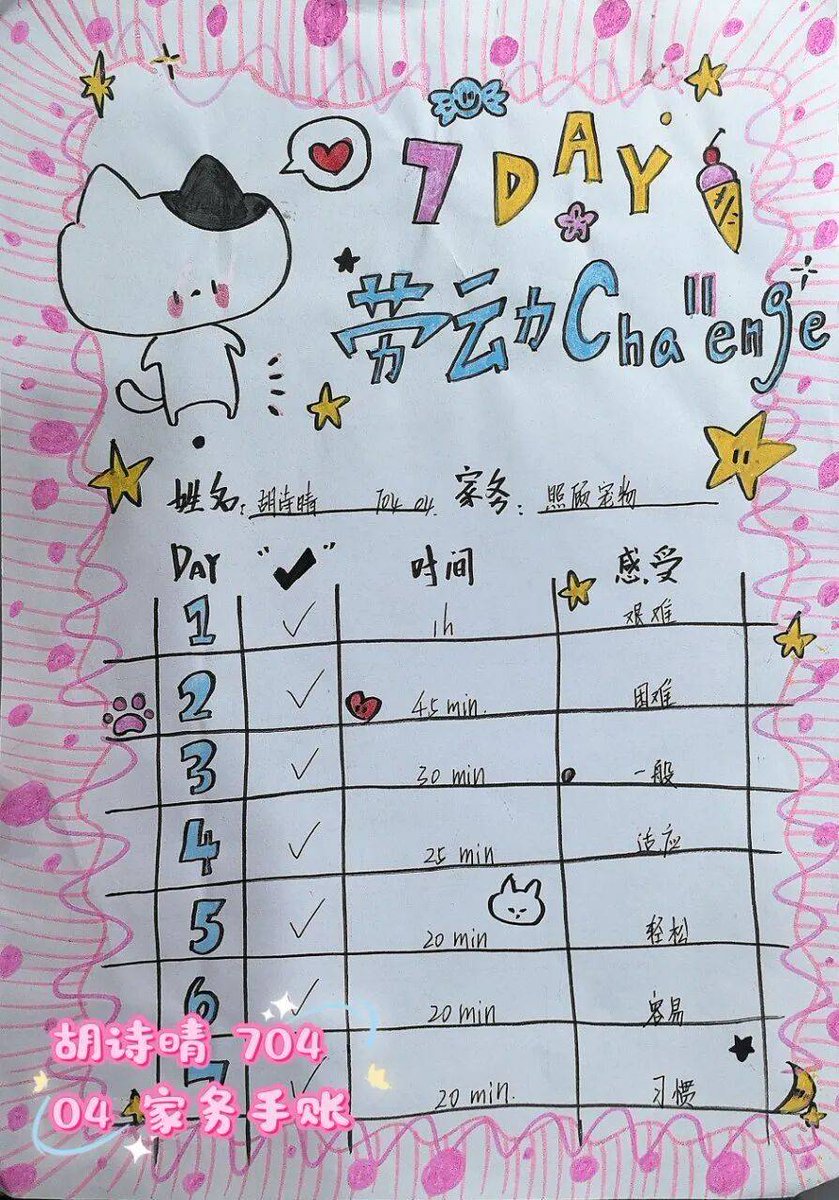 7 DAY
劳动Challenge
姓名: 胡诗晴 704 04 家务: 照顾宠物
DAY "✓" 时间 感受
1 ✓ 1h 艰难
2 ✓ 45 min. 困难
3 ✓ 30 min 一般
4 ✓ 25 min 适应
5 ✓ 20 min 轻松
6 ✓ 20 min 容易
✓ 20 min. 习惯
胡诗晴 704
04 家务手账